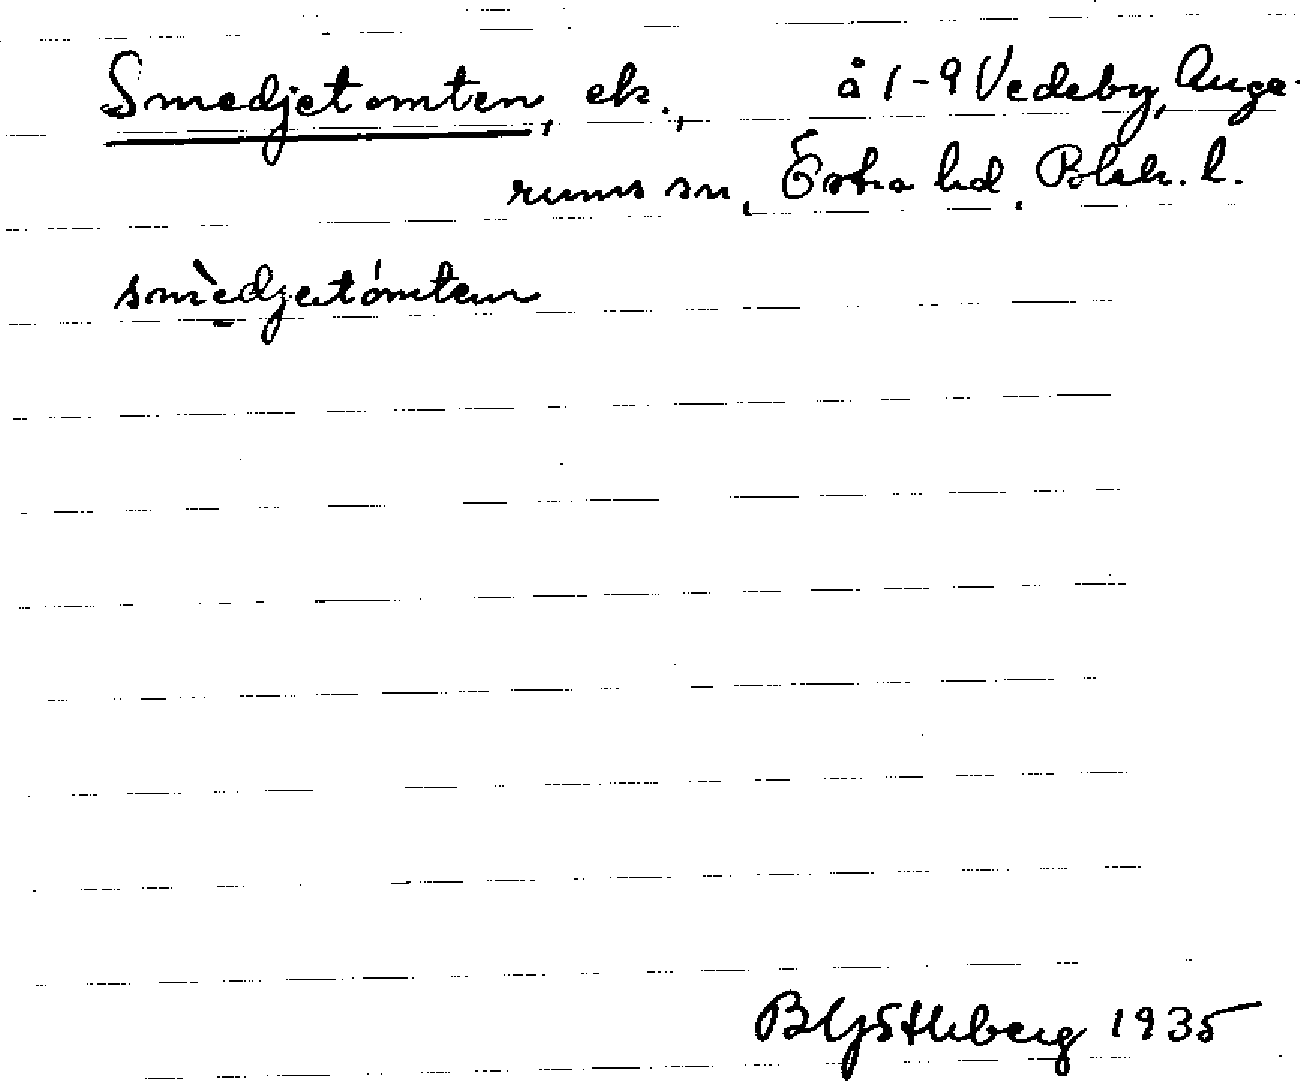 Smedjetomten, ek., å 1-9 Vedeby, Auge-
rums sn, Östra hd, Blek. l.
smèdjetómten
B Göthberg 1935